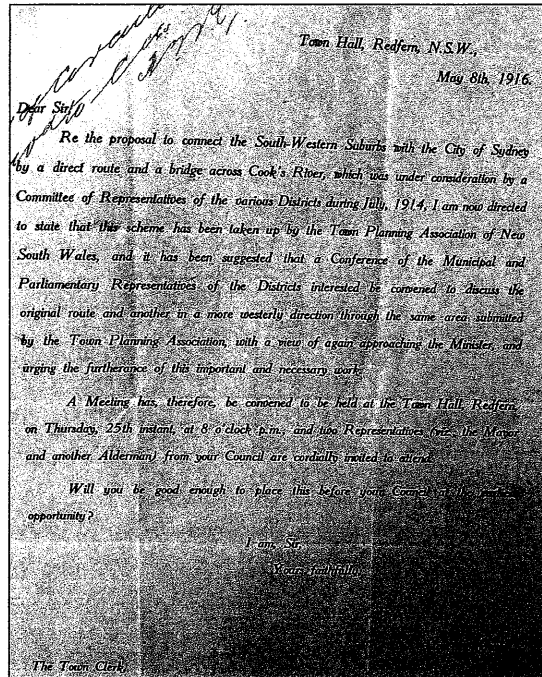 Town Hall, Redfern, N.S.W.,
May 8th, 1916.
Dear Sir,
Re the proposal to connect the South-Western Suburbs with the City of Sydney
by a direct route and a bridge across Cook's River, which was under consideration by a
Committee of Representatives of the various Districts during July, 1914, I am now directed
to state that this scheme has been taken up by the Town Planning Association of New
South Wales, and it has been suggested that a Conference of the Municipal and
Parliamentary Representatives of the Districts interested be convened to discuss the
original route and another in a more westerly direction through the same area submitted
by the Town Planning Association, with a view of again approaching the Minister, and
urging the furtherance of this important and necessary work.
A Meeting has, therefore, be convened to be held at the Town Hall, Redfern,
on Thursday, 25th instant, at 8 o'clock p.m., and two Representatives (viz., the Mayor
and another Alderman) from your Council are cordially invited to attend.
Will you be good enough to place this before your Council at the
opportunity?
I am, Sir,
Yours faithfully,
The Town Clerk,